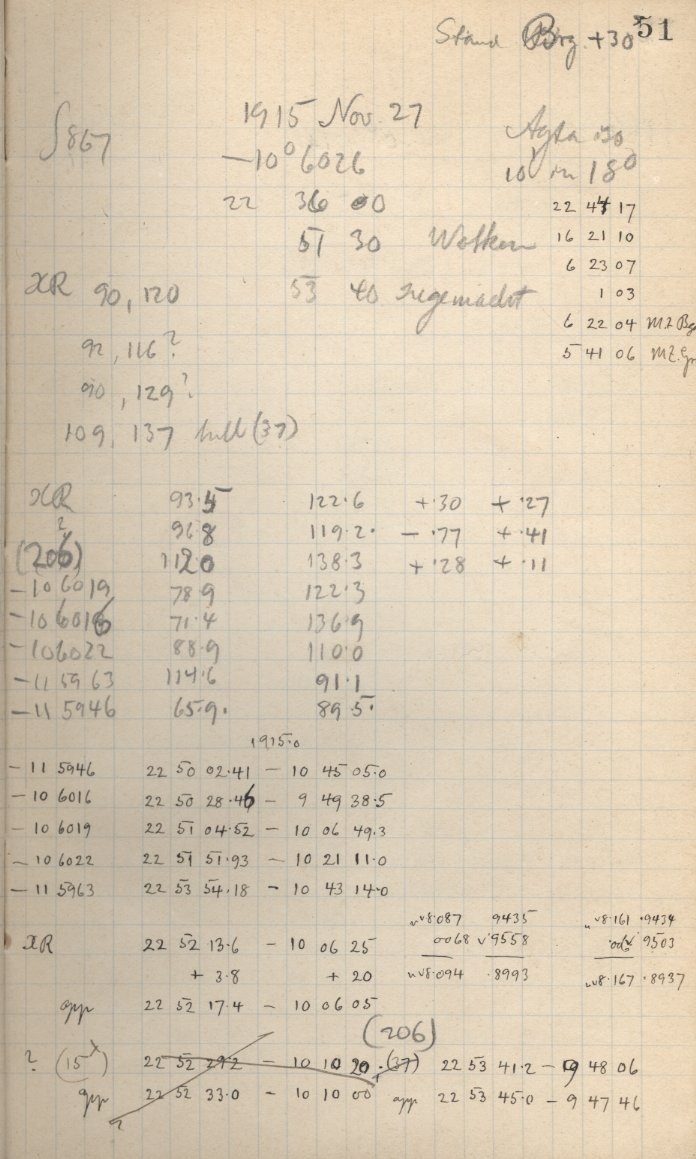 Stand Brg +30 51
1915 Nov. 27
867
Agfa
−10° 6026
10 in 18°
22 36 00
22 44 17
51 30 Wolken
16 21 10
XR 90, 120 53 40 zugemacht
6 23 07
1 03
92, 116?
6 22 04 M.Z. Bg
90, 129?
5 41 06 M.Z. Gr
109, 137 hell (37)
XR 93.5 122.6 +.30 +.27
? 96.8 119.2. −.77 +.41
(206) 112.0 138.3 +.28 +.11
−10 6019 78.9 122.3
−10 6016 71.4 136.9
−10 6022 88.9 110.0
−11 5963 114.6 91.1
−11 5946 65.9. 89.5.
1915.0
−11 5946 22 50 02.41 − 10 45 05.0
−10 6016 22 50 28.46 − 9 49 38.5
−10 6019 22 51 04.52 − 10 06 49.3
−10 6022 22 51 51.93 − 10 21 11.0
−11 5963 22 53 54.18 − 10 43 14.0
8.087 9435 8.161 .9434
XR 22 52 13.6 − 10 06 25
0068 9558 9503
+ 3.8 + 20
8.094 .8993 8.167 .8937
app 22 52 17.4 − 10 06 05
(206)
? (15x) 22 52 29.2 − 10 10 20. (37) 22 53 41.2 − 9 48 06
app 22 52 33.0 − 10 10 00 app 22 53 45.0 − 9 47 46